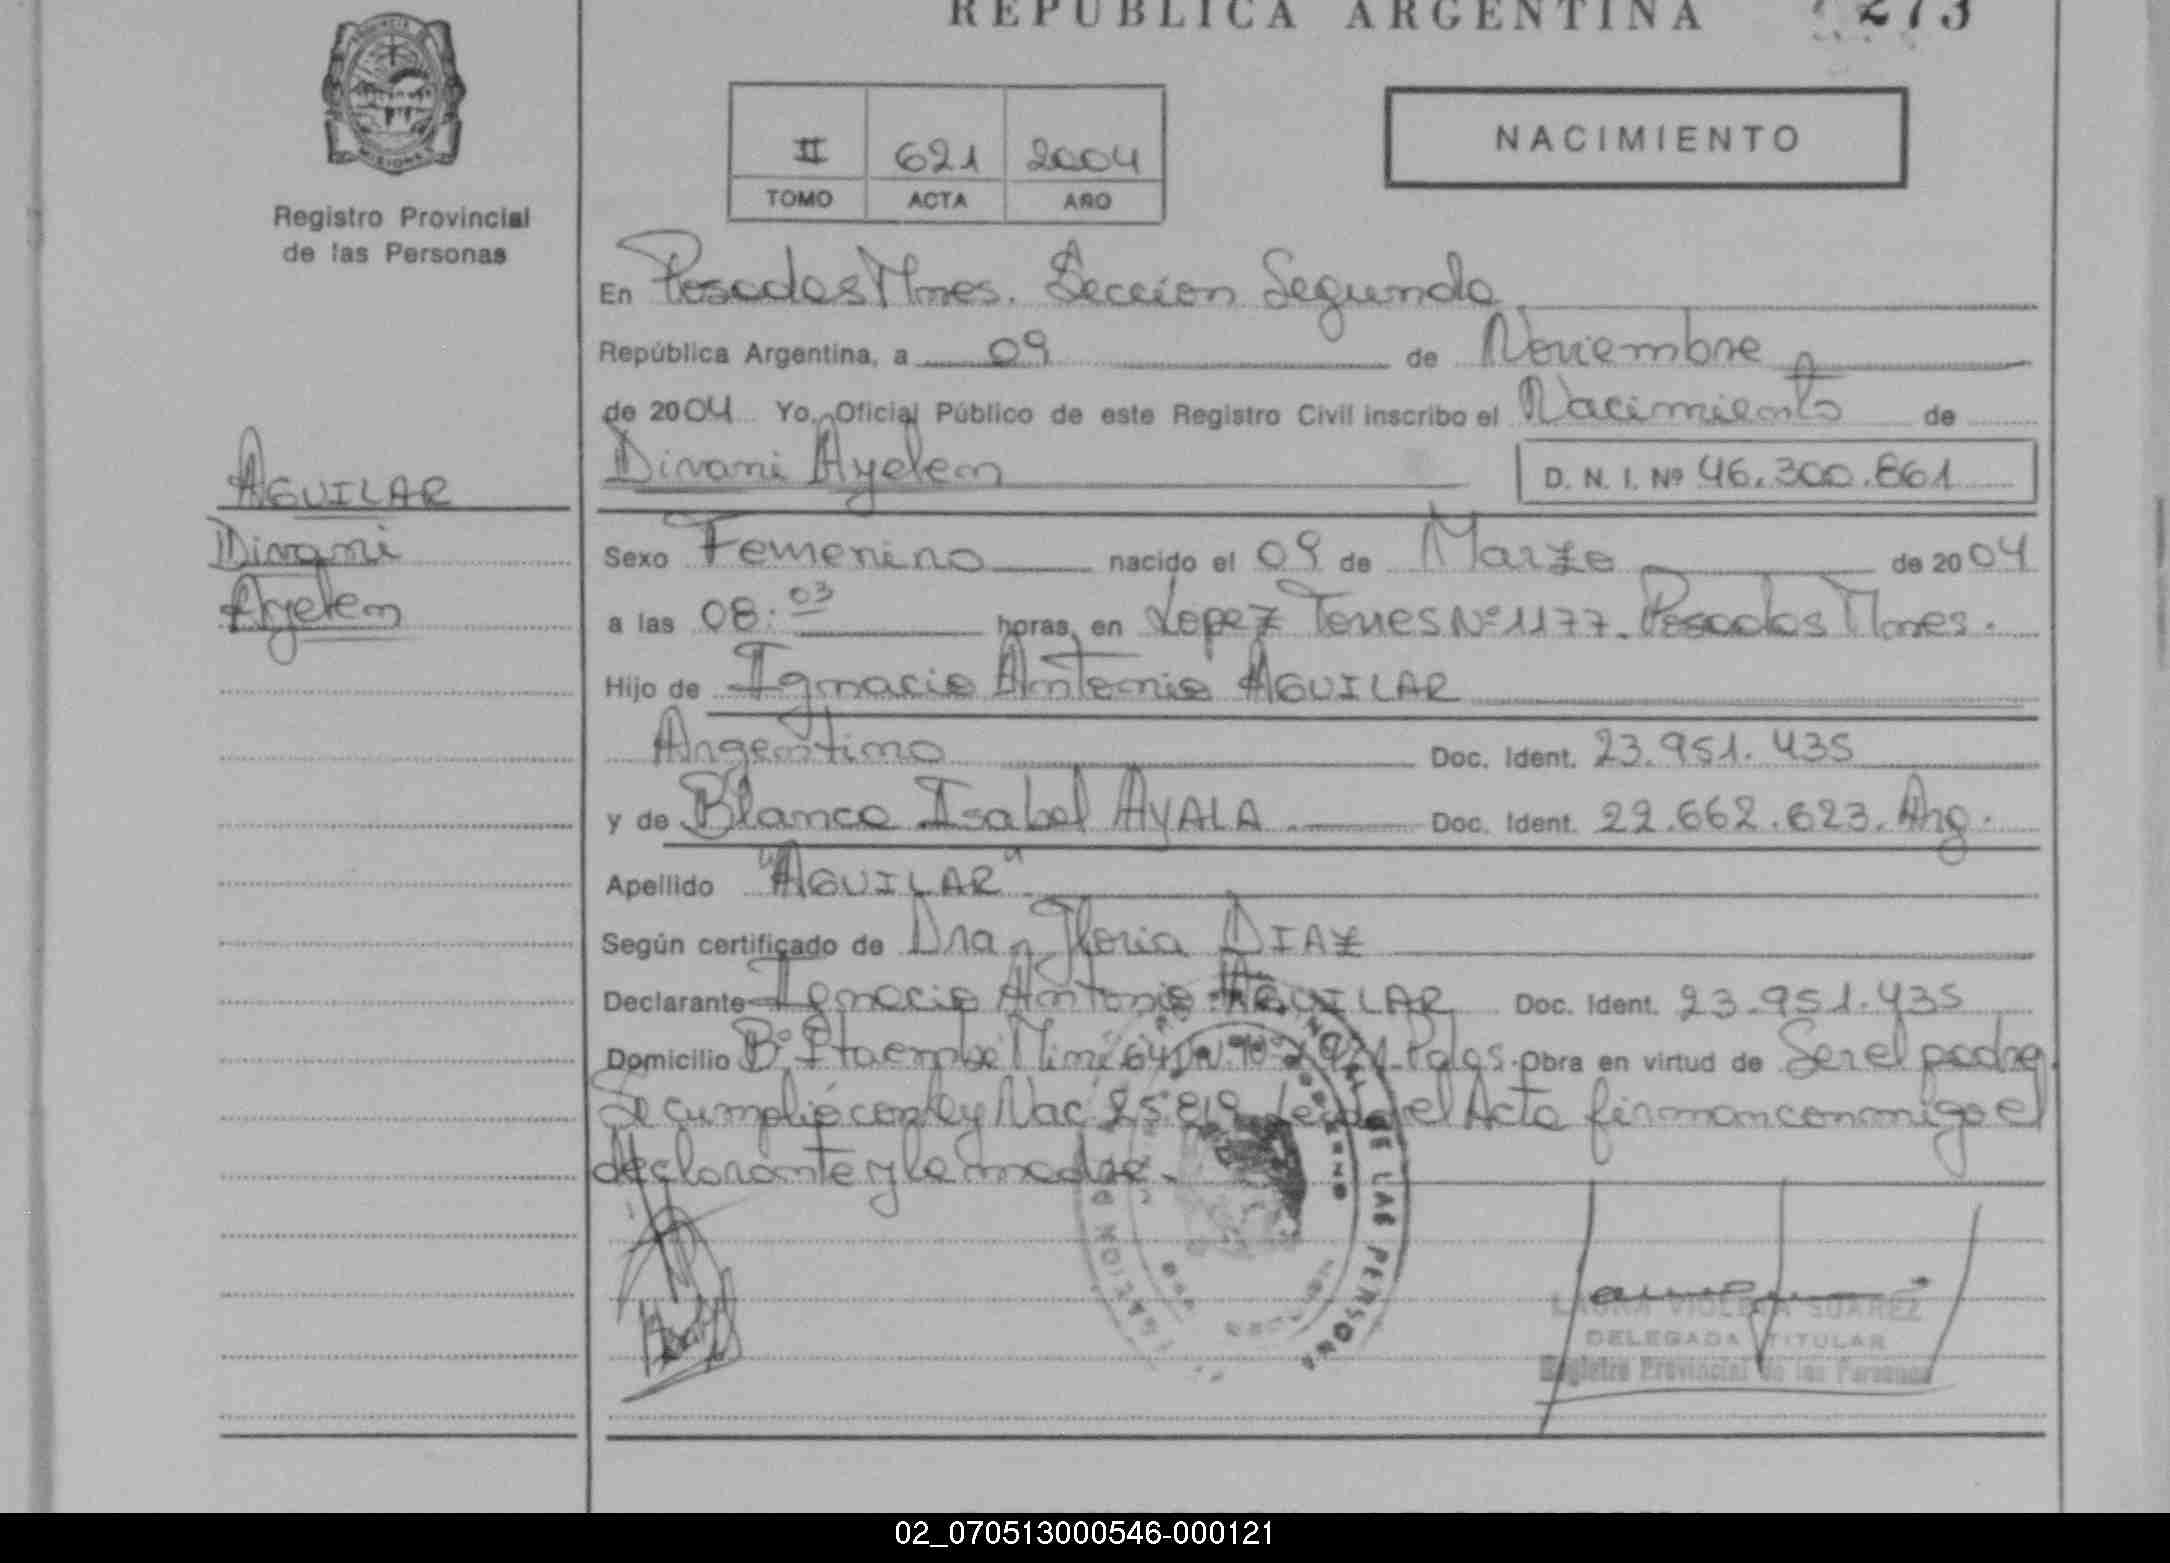 REPUBLICA ARGENTINA 273
PROVINCIA
MISIONES
Registro Provincial
de las Personas
II 621 2004
TOMO ACTA AÑO
NACIMIENTO
En Posadas Mnes. Seccion Segunda
República Argentina, a 09 de Noviembre
de 2004 Yo, Oficial Público de este Registro Civil inscribo el Nacimiento de
Divani Ayelen D. N. I. Nº 46.300.861
AGUILAR
Divani
Ayelen
Sexo Femenino nacido el 09 de Marzo de 2004
a las 08:03 horas, en Lopez Torres Nº 1177. Posadas Mnes.
Hijo de Ignacio Antonio AGUILAR
Argentino Doc. Ident. 23.951.435
y de Blanca Isabel AYALA Doc. Ident. 22.662.623. Arg.
Apellido "AGUILAR"
Según certificado de Dra. Gloria DIAZ
Declarante Ignacio Antonio AGUILAR Doc. Ident. 23.951.435
Domicilio Bº Itaembé Mini Pdas. Obra en virtud de Ser el padre.
Se cumplió con ley Nac 25.819 Leida el Acta firman conmigo el
declarante y la madre.
DE LAS PERSONAS
LAURA VIOLETA SUAREZ
DELEGADA TITULAR
Registro Provincial de las Personas
02_070513000546-000121